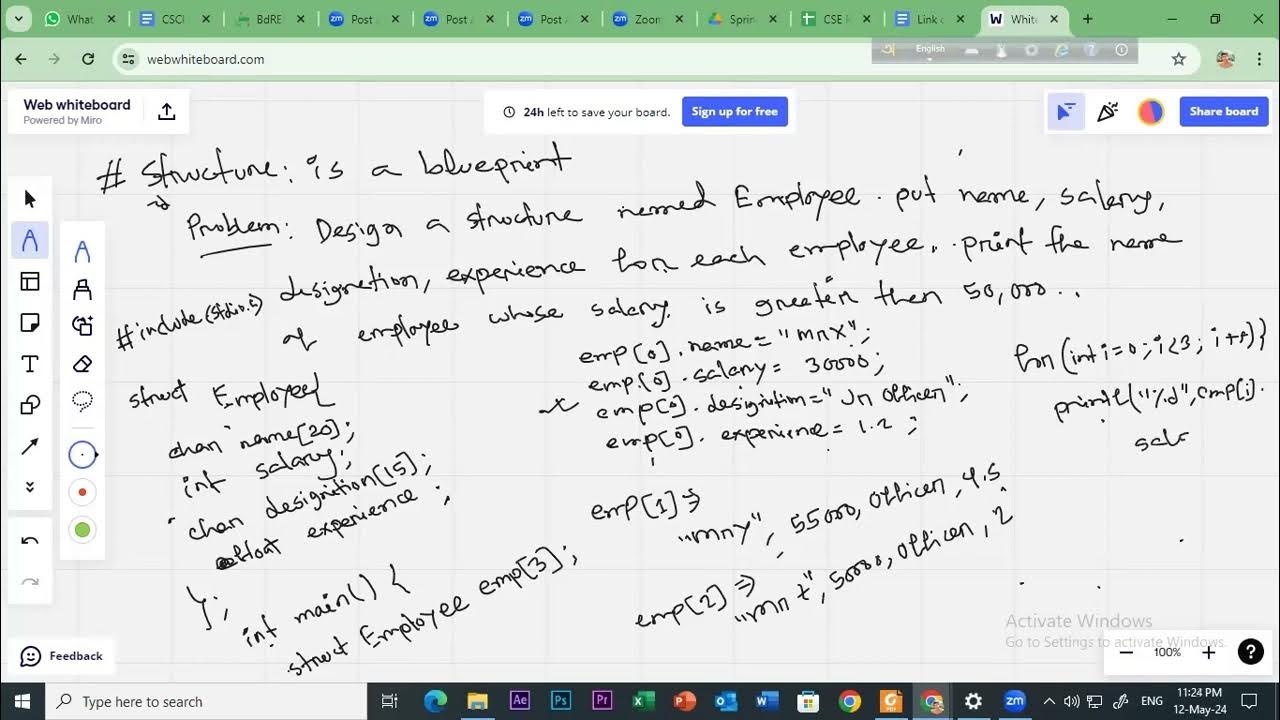 What
CSCI
BdRE
Post
Post
Post
Zoom
Sprin
CSE
Link
White
English
webwhiteboard.com
Web whiteboard
Powered by Miro
24h left to save your board.
Sign up for free
Share board
# Structure: is a blueprint
Problem: Design a structure named Employee. put name, salary,
designation, experience for each employee. print the name
of employee whose salary is greater then 50,000..
#include(stdio.h)
struct Employee{
char name[20];
int salary;
char designation[15];
float experience;
};
int main() {
struct Employee emp[3];
emp[0].name="mnx";
emp[0].salary= 30000;
emp[0].designation="Jn Officer";
emp[0].experience=1.2;
emp[1]⇒
"mny", 55000, Officer, 4.5
emp[2]⇒
"mnz", 50000, Officer, 2
for(int i=0;i<3;i++){
printf("%d",emp[i].
sal
Feedback
Activate Windows
Go to Settings to activate Windows.
100%
Type here to search
ENG
11:24 PM
12-May-24